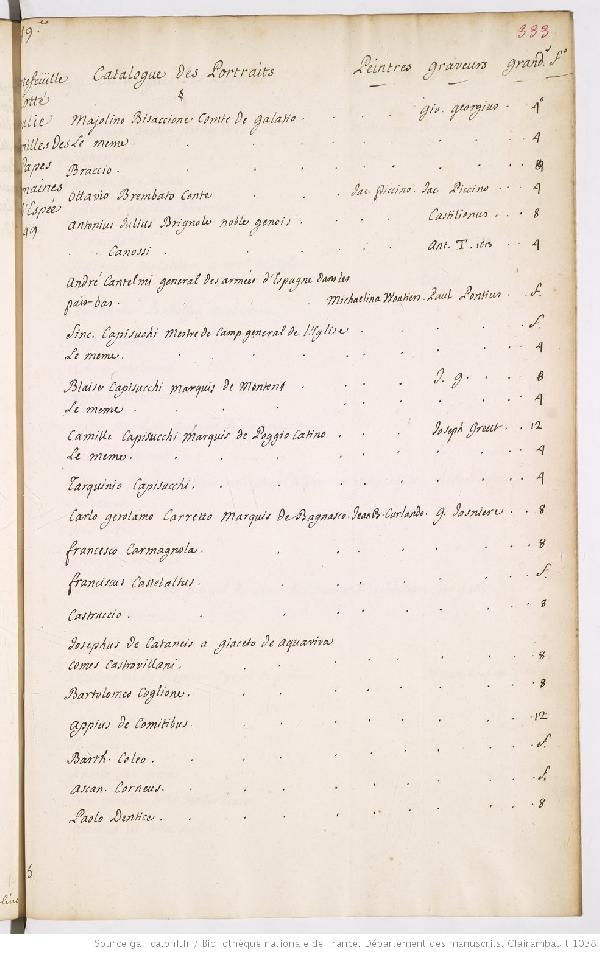 333
Catalogue des Portraits Peintres graveurs grand.r f.o
Majolino Bisaccione Comte de Galasso . . . . Gio. georgius . 4o
Le meme . . . . . . 4
Braccio . . . . . .
Ottavio Brembato Conte . . Jac. piccino . Jac. Piccino . . . 4
Antonius Julius Brignole noble genois . . . . Castilionus . . . 8
. . Canossi . . . . Ant. T. 1613 . . . 4
André Cantelmi general des armées d'Espagne dans les
pais bas . . . Michaelina Woutiers . Paul Pontius . f.
Sinc. Capisuchi mestre de Camp general de l'Eglise . . . f.
Le meme . . . . . . 4
Blaise Capisucchi marquis de Montero . . . J. g. . . . 8
Le meme . . . . . . 4
Camille Capisucchi Marquis de Poggio Catino . . . Joseph Grout . . 12
Le meme . . . . . . 4
Tarquinio Capisucchi . . . . . . 4
Carlo gerolamo Carretto Marquis de Bagnasco . Jean B. Curlando . g. Tasniere . . 8
francesco Carmagnola . . . . . . 8
franciscus Castelaltus . . . . . . f.
Castruccio . . . . . . 8
Josephus de Cataneis a giaceto de aquaviva
comes Castrovillani . . . . . . 8
Bartolomeo Coglione . . . . . . 8
appius de Comitibus . . . . . . 12
Barth. Coleo . . . . . . f.
Ascan. Corneus . . . . . . f.
Paolo Dentice . . . . . . 8
Source gallica.bnf.fr / Bibliothèque nationale de France. Département des manuscrits. Clairambault 1038